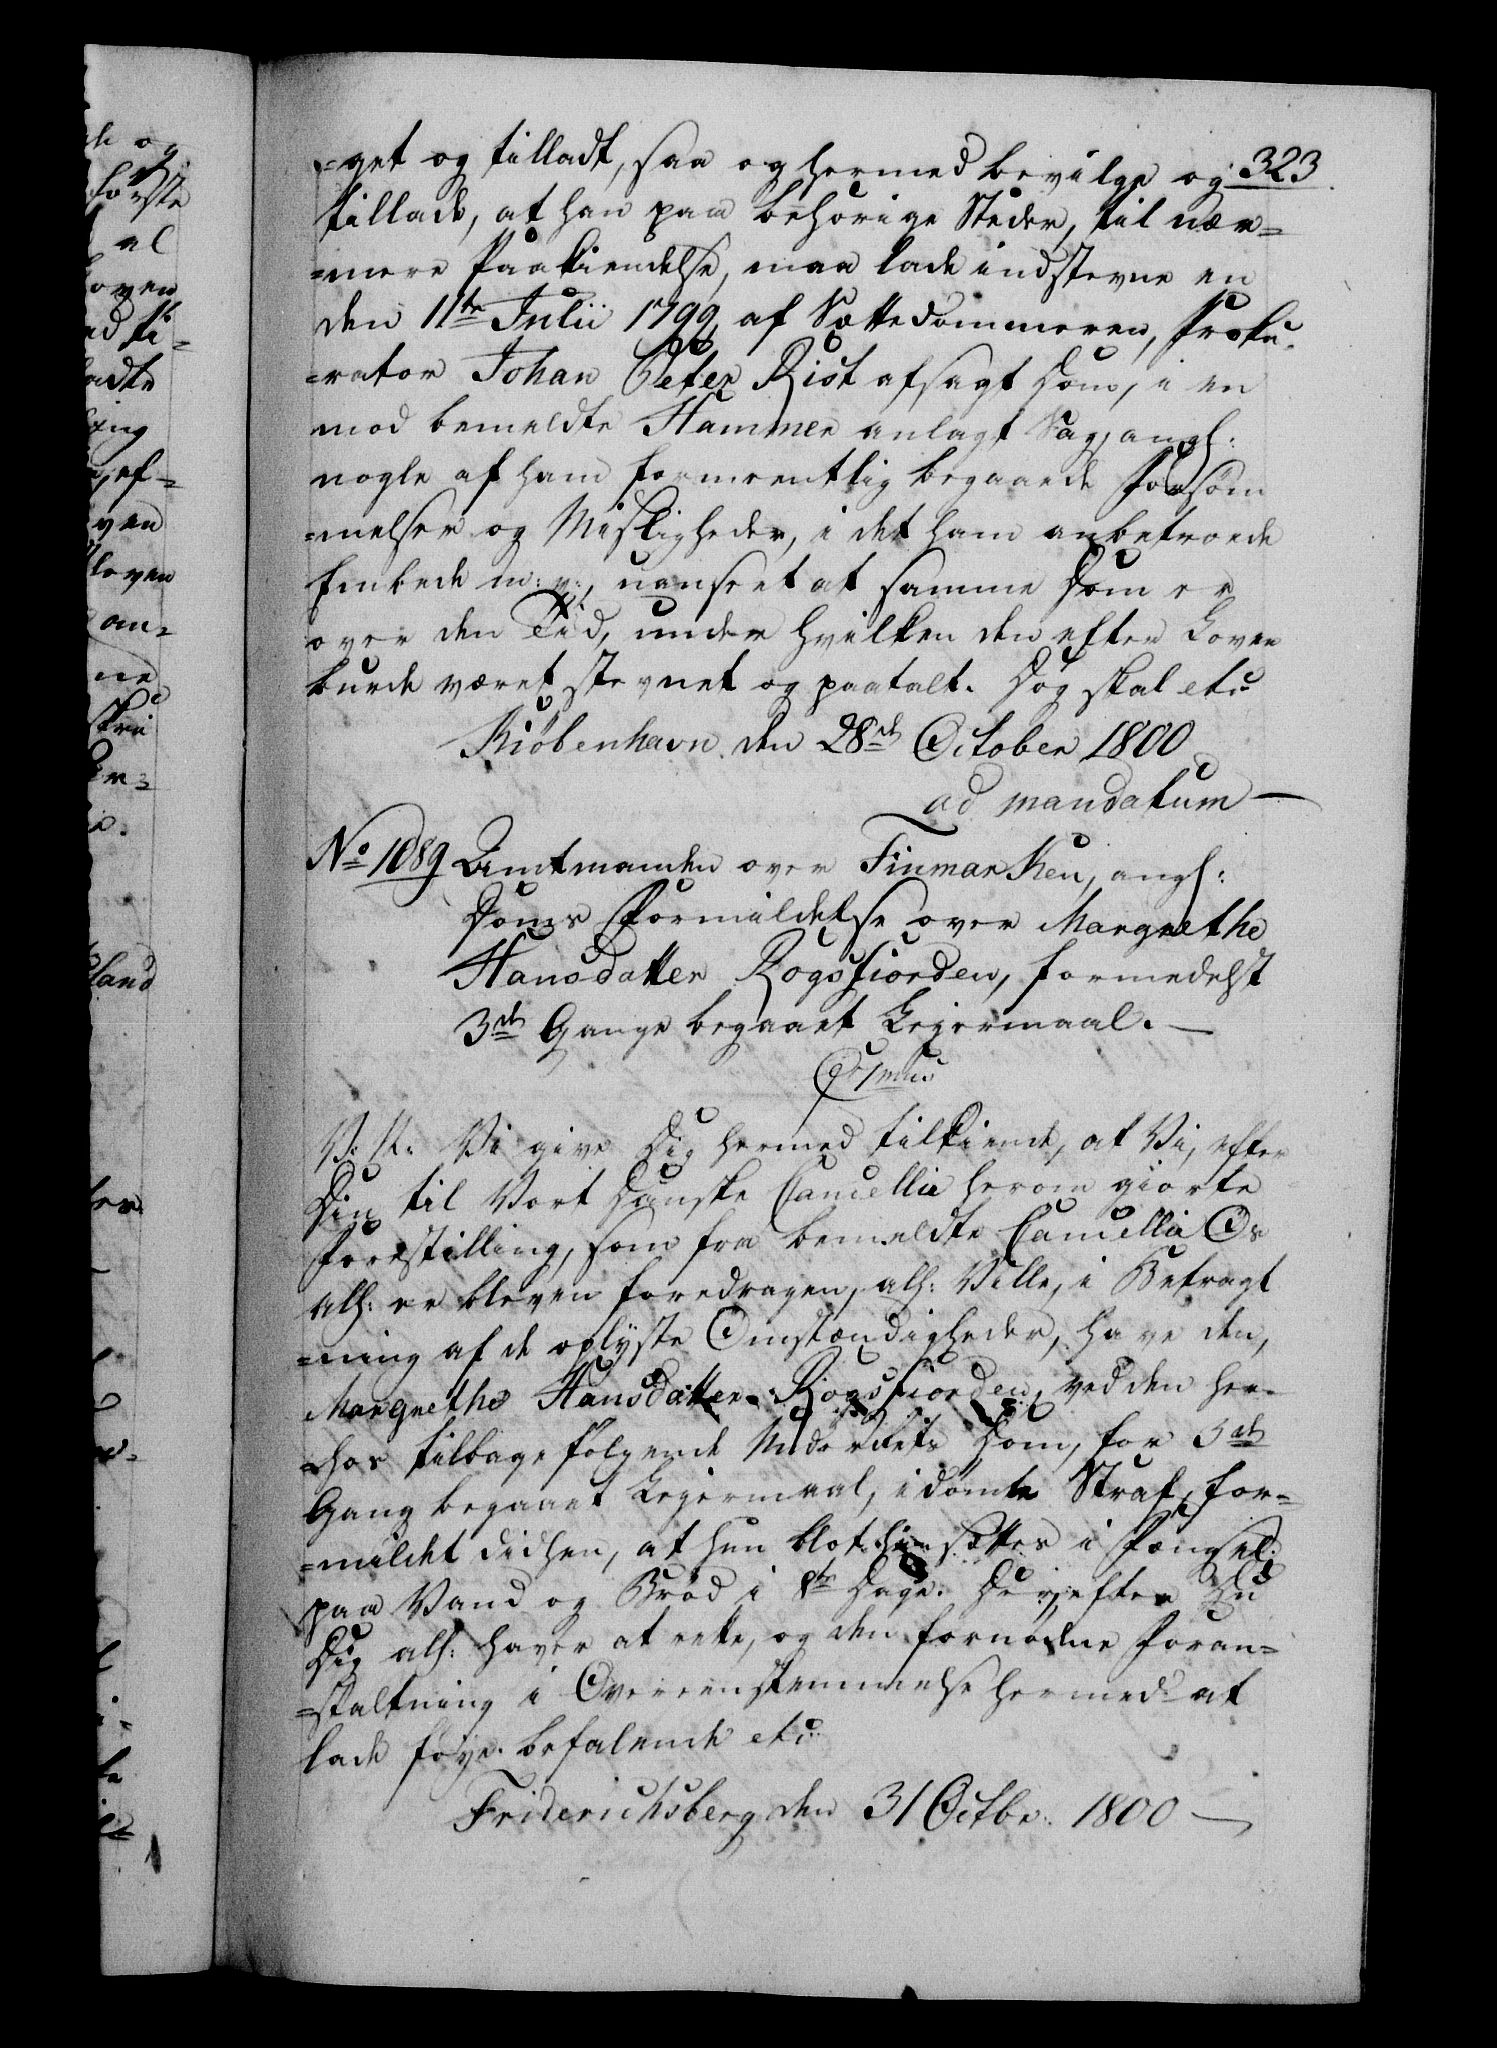 323
=get og tilladt, saa og hermed bevilge og
tillade, at han paa behørige Steder, til nær=
=mere Paakiendelse, maa lade indstevne en
den 11te Julii 1799 af Sættedommeren, Proku=
=rator Johan Peter Rist afsagt Dom, i en
mod bemeldte Hammer anlagt Sag, angl:
nogle af ham formeentlig begaaede Forsøm
=melser og Misligheder, i det ham anbetroede
Embede m: v:, uanseet at samme Dom er
over den Tid, under hvilken den efter Loven
burde været stevnet og paatalt. Dog skal etc
Kiøbenhavn den 28de October 1800
ad mandatum
No 1089 Amtmanden over Finmarken, angl:
Doms Formildelse over Margrethe
Hansdatter Rogsfiorden, formedelst
3de Gange begaaet Leiermaal.
V: G: Vi give Dig hermed tilkiende, at Vi, efter
Din til Vort Danske Cancellie herom giorte
Forestilling, som fra bemeldte Cancellie Os
alh: er bleven foredragen, alh: Ville, i Betragt
=ning af de oplyste Omstændigheder, have den,
Margrethe Hansdatter Rogsfiorden, ved den her=
=hos tilbagefølgende Underrets Dom, for 3de
Gang begaaet Leiermaal, idømte Straf, for=
=mildet didhen, at hun blot hinsættes i Fængsel
paa Vand og Brød i 8te Dage. Derefter Du
Dig alh: haver at rette, og den fornødne Foran=
=staltning i Overeenstemmelse hermed at
lade føye. befalende etc
Friderichsberg den 31 Octbr. 1800